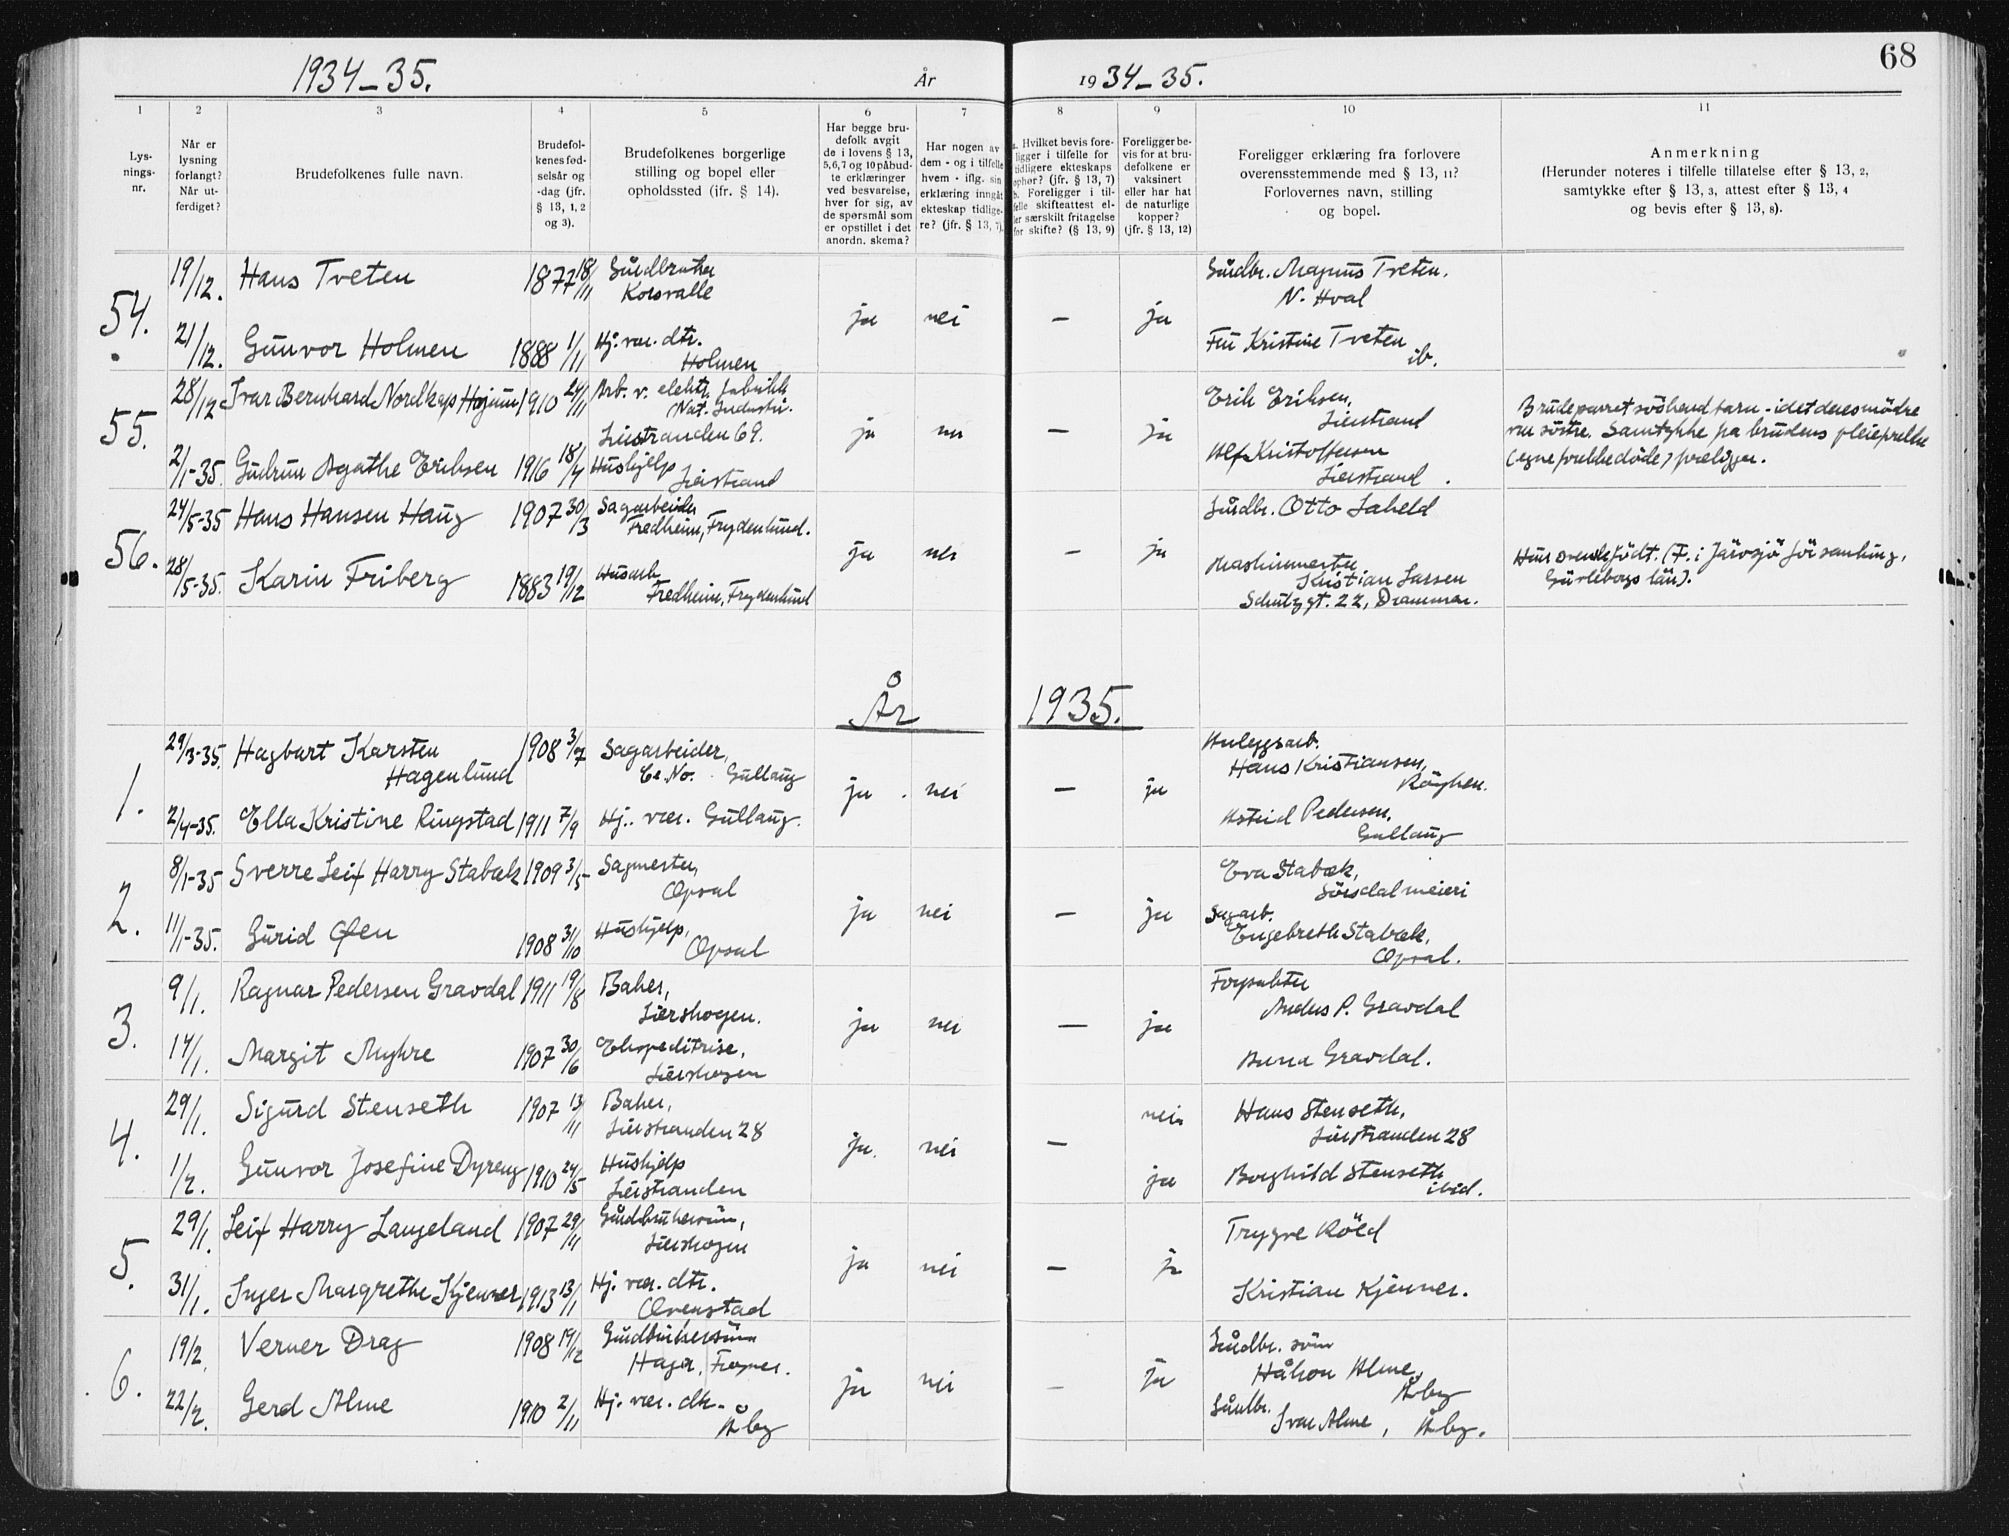 1934-35.
År
1934-35.
68
1
2
3
4
5
6
7
8
9
10
11
Lys-
nings-
nr.
Når er
lysning
forlangt?
Når ut-
ferdiget?
Brudefolkenes fulle navn.
Brudefol-
kenes fød-
selsår og
-dag (jfr.
§ 13, 1, 2
og 3).
Brudefolkenes borgerlige
stilling og bopel eller
opholdssted (jfr. § 14).
Har begge bru-
defolk avgit
de i lovens § 13,
5,6,7 og 10 påbud-
te erklæringer
ved besvarelse,
hver for sig, av
de spørsmål som
er opstillet i det
anordn. skema?
Har nogen av
dem - og i tilfelle
hvem - iflg. sin
erklæring inngåt
ekteskap tidlige-
re? (jfr. § 13, 7).
a. Hvilket bevis fore-
ligger i tilfelle for
tidligere ekteskaps
ophør? (jfr. § 13, 7)
b. Foreligger i til-
felle skifteattest el-
ler særskilt fritagelse
for skifte? (§ 13, 9)
Foreligger be-
vis for at bru-
defolkene er
vaksinert
eller har hat
de naturlige
kopper?
(jfr. § 13, 12)
Foreligger erklæring fra forlovere
overensstemmende med § 13, 11?
Forlovernes navn, stilling
og bopel.
Anmerkning
(Herunder noteres i tilfelle tillatelse efter § 13, 2,
samtykke efter § 13, 3, attest efter § 13, 4
og bevis efter § 13, 8).
54.
19/12.
Hans Tveten
1877 18/11
Gårdbruker
Korsvalle
ja
nei
—
ja
Gårdbr. Magnus Tveten.
N. Hval
21/12.
Gunvor Holmen
1888 1/11
Hj. vær. dtr.
Holmen
Fru Kristine Tveten
ib.
55.
28/12
Ivar Bernhard Nordkap Hojum
1910 24/11
Arb. v. elektr. fabrikk
Nat. Industri.
Lierstranden 69.
ja
nei
—
ja
Erik Eriksen,
Lierstrand
Brudeparret søskend barn - idet deres mødre
var søstre. Samtykke fra brudens pleieforeldre
(egne foreldre døde) foreligger.
2/1-35.
Gudrun Agathe Eriksen
1916 18/4
Hushjelp
Lierstrand
Alf Kristoffersen
Lierstrand.
56.
24/5-35
Hans Hansen Haug
1907 30/3
Sagarbeider
Fredheim, Frydenlund.
ja
nei
—
ja
Gårdbr. Otto Saheld
28/5-35.
Karin Friberg
1883 19/12
Husarb.
Fredheim, Frydenlund
Maskinmester
Kristian Larsen
Schutzgt. 22, Drammen.
Hun svenskfødt. (F. i Järvsjö församling,
Gävleborgs län).
År 1935.
1.
29/3-35.
Hagbart Karsten
Hagenlund
1908 3/7
Sagarbeider,
Gullaug
ja
nei
—
ja
Anleggsarb.
Hans Kristiansen,
Røyken.
2/4-35.
Ella Kristine Ringstad
1911 7/9
Hj. vær. Gullaug.
Astrid Pedersen,
Gullaug
2.
8/1-35
Sverre Leif Harry Stabæk
1909 3/5
Sagmester,
Opsal
ja
nei
—
ja
Eva Stabæk,
Sørsdal meieri
11/1-35.
Gurid Øen
1908 31/10
Hushjelp,
Opsal
Sagarb.
Engebreth Stabæk,
Opsal.
3.
9/1.
Ragnar Pedersen Gravdal
1911 19/8
Baker,
Lierskogen.
ja
nei
—
ja
Forpakter
Anders P. Gravdal
14/1.
Margit Myhre
1907 30/6
Ekspeditrise,
Lierskogen
Anna Gravdal.
4.
29/1.
Sigurd Stenseth
1907 13/11
Baker,
Lierstranden 28
ja.
nei
—
nei
Hans Stenseth,
Lierstranden 28
1/2.
Gunvor Josefine Dyreng
1910 24/5
Hushjelp
Lierstranden
ja
Borghild Stenseth
ibid.
5.
29/1.
Leif Harry Langeland
1907 29/11
Gårdbrukersøn,
Lierskogen
ja
nei
—
ja
Trygve Röed
31/1.
Inger Margrethe Kjenner
1913 13/1
Hj. vær. dtr.
Ovenstad
Kristian Kjenner.
6.
19/2.
Verner Drag
1908 19/12
Gårdbrukersønn
Hager, Frogner.
ja
nei
—
ja
Gårdbr. søn
Håkon Alme,
Åby
22/2.
Gerd Alme
1910 2/11
Hj. vær. dtr.
Åby
Gårdbr.
Ivar Alme, Åby.